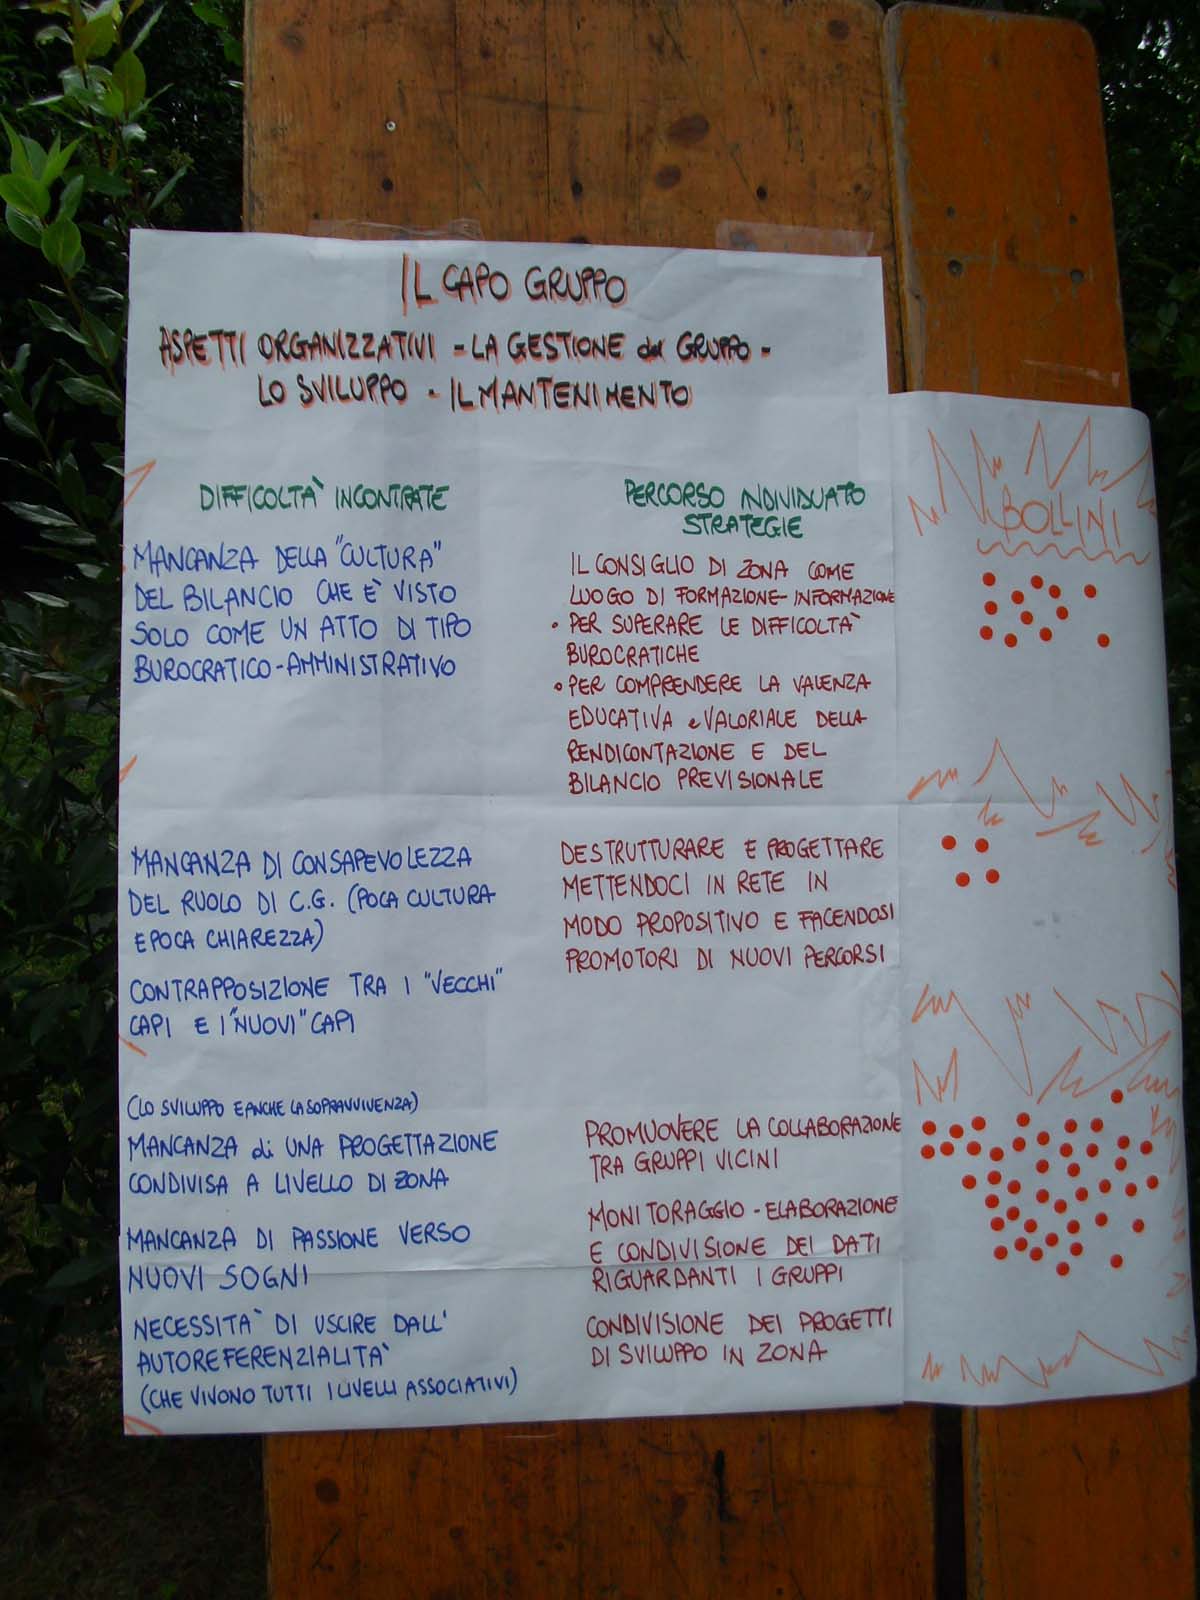 IL CAPO GRUPPO
ASPETTI ORGANIZZATIVI - LA GESTIONE del GRUPPO -
LO SVILUPPO - IL MANTENIMENTO
DIFFICOLTÀ INCONTRATE
MANCANZA DELLA "CULTURA"
DEL BILANCIO CHE È VISTO
SOLO COME UN ATTO DI TIPO
BUROCRATICO-AMMINISTRATIVO
MANCANZA DI CONSAPEVOLEZZA
DEL RUOLO DI C.G. (POCA CULTURA
E POCA CHIAREZZA)
CONTRAPPOSIZIONE TRA I "VECCHI"
CAPI E I "NUOVI" CAPI
(LO SVILUPPO E ANCHE LA SOPRAVVIVENZA)
MANCANZA di UNA PROGETTAZIONE
CONDIVISA A LIVELLO DI ZONA
MANCANZA DI PASSIONE VERSO
NUOVI SOGNI
NECESSITÀ DI USCIRE DALL'
AUTOREFERENZIALITÀ
(CHE VIVONO TUTTI I LIVELLI ASSOCIATIVI)
PERCORSO INDIVIDUATO
STRATEGIE
IL CONSIGLIO DI ZONA COME
LUOGO DI FORMAZIONE-INFORMAZIONE
• PER SUPERARE LE DIFFICOLTÀ
BUROCRATICHE
• PER COMPRENDERE LA VALENZA
EDUCATIVA e VALORIALE DELLA
RENDICONTAZIONE E DEL
BILANCIO PREVISIONALE
DESTRUTTURARE E PROGETTARE
METTENDOCI IN RETE IN
MODO PROPOSITIVO E FACENDOSI
PROMOTORI DI NUOVI PERCORSI
PROMUOVERE LA COLLABORAZIONE
TRA GRUPPI VICINI
MONITORAGGIO - ELABORAZIONE
E CONDIVISIONE DEI DATI
RIGUARDANTI I GRUPPI
CONDIVISIONE DEI PROGETTI
DI SVILUPPO IN ZONA
BOLLINI